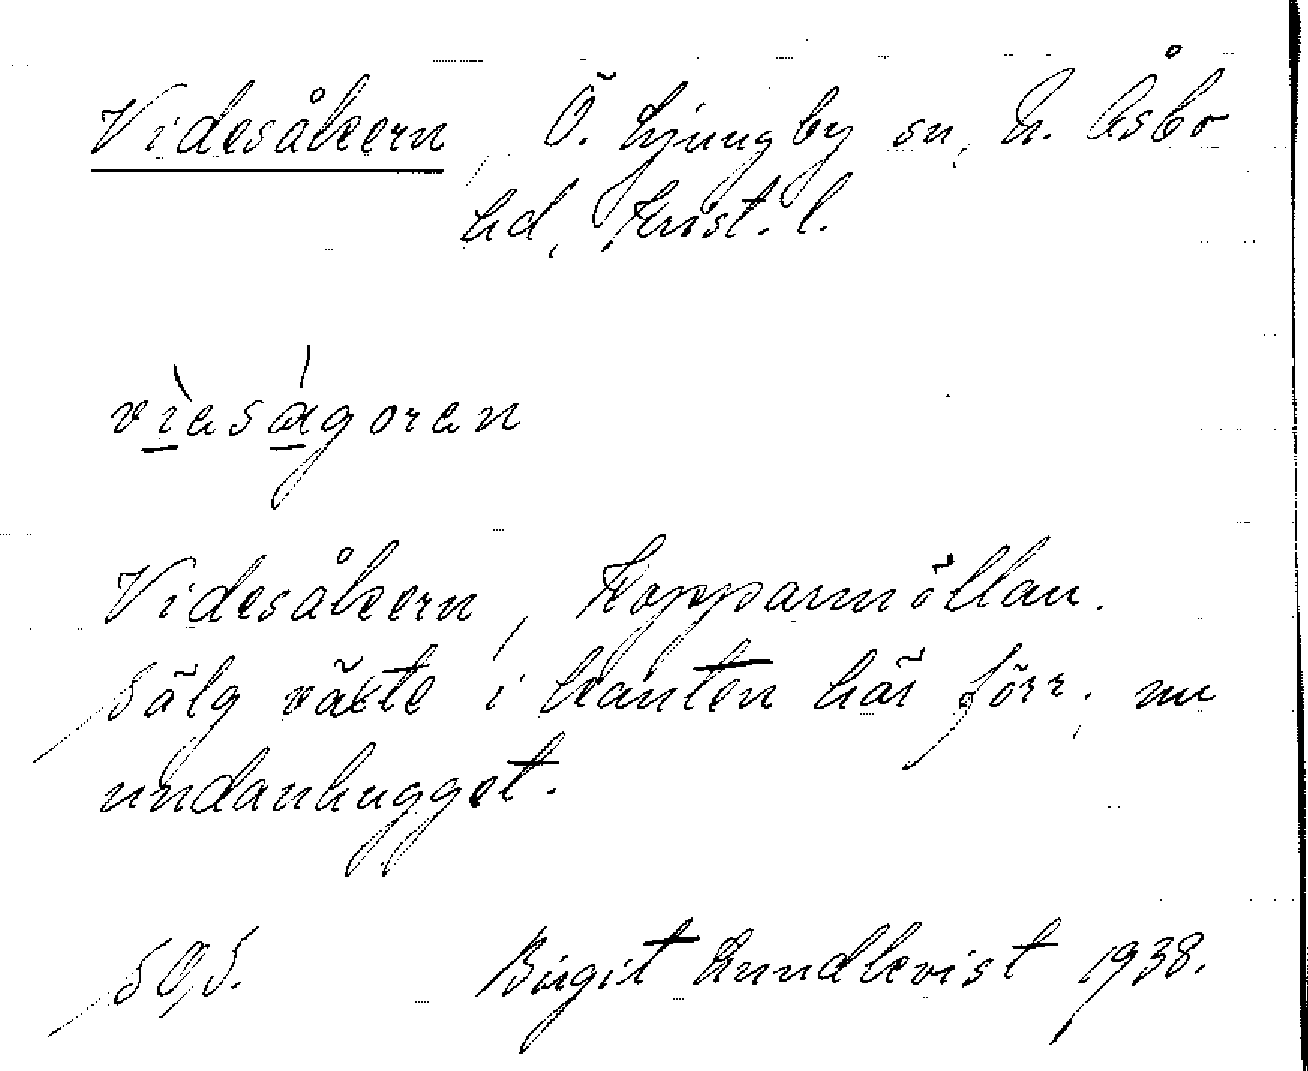 Videsåkern, Ö. Ljungby sn, N. Åsbo
hd, Krist. l.
vìaságoren
Videsåkern, Kopparmöllan.
Sälg växte i kanten här förr, nu
undanhugget.
SOS. Birgit Lundkvist 1938.